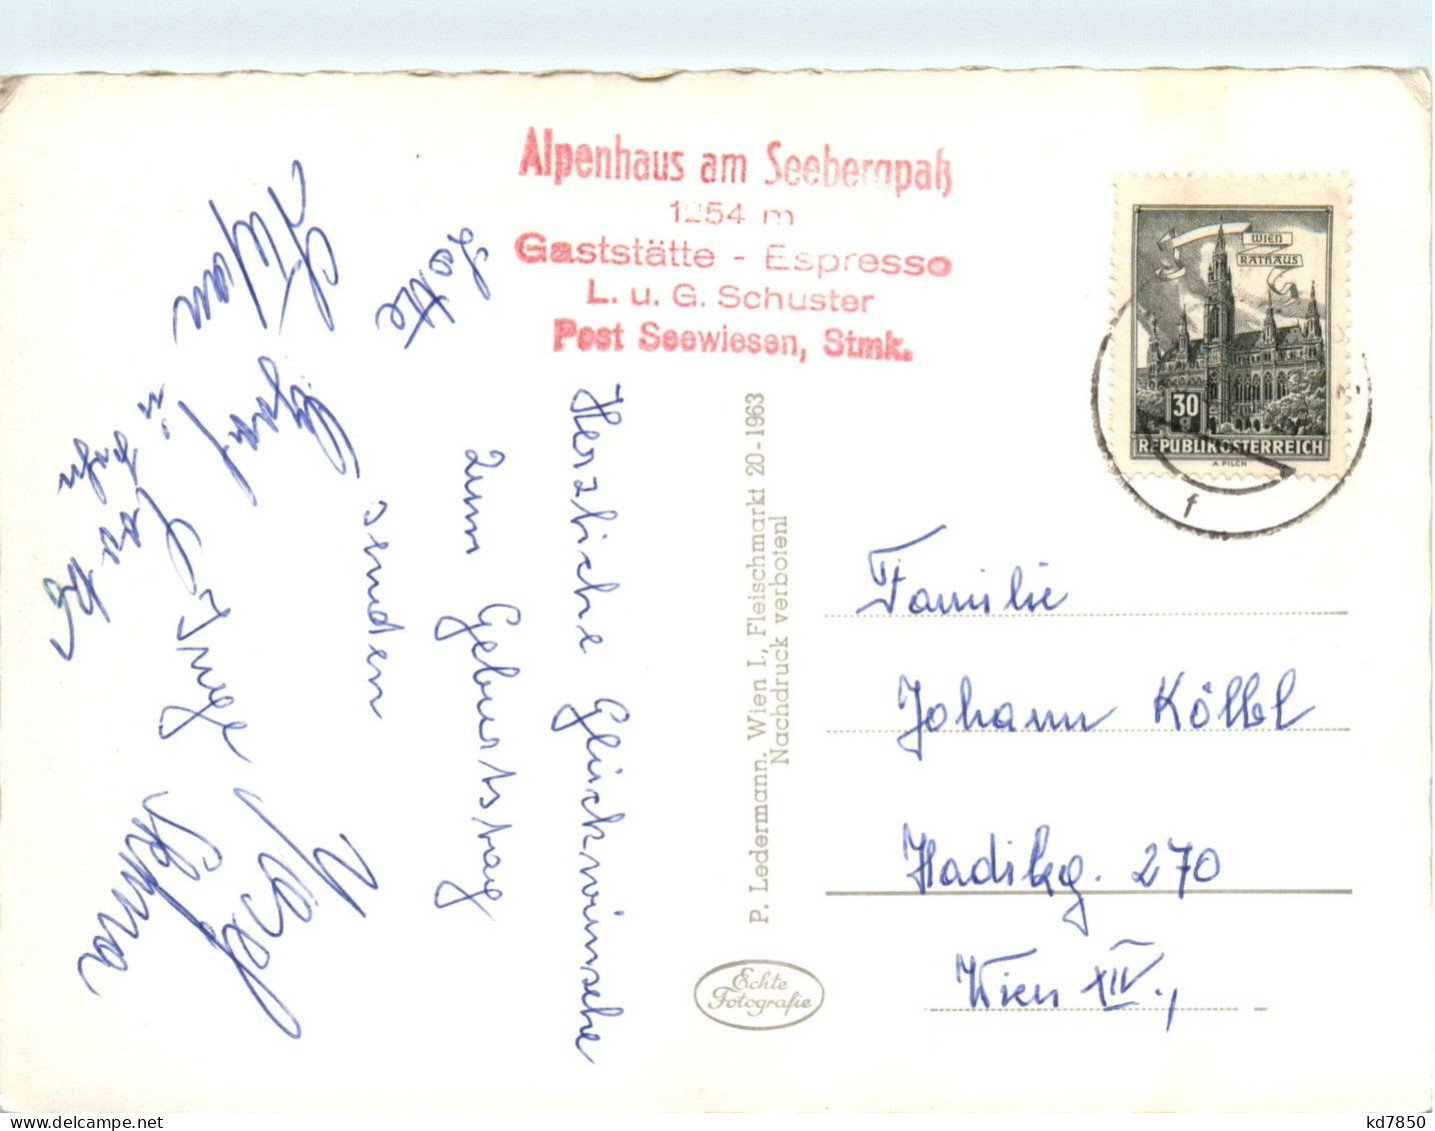 Alpenhaus am Seebergpaß
1254 m
Gaststätte - Espresso
L. u. G. Schuster
Post Seewiesen, Stmk.
WIEN
RATHAUS
30 g
REPUBLIK ÖSTERREICH
A. PILCH
Herzliche Glückwünsche
zum Geburtstag
senden
Lotte
Josef
Stefan
Inge
Selma
P. Ledermann. Wien I., Fleischmarkt 20-1963
Nachdruck verboten!
Echte
Fotografie
Familie
Johann Kölbl
Hadikg. 270
Wien XIV.,
kd7850